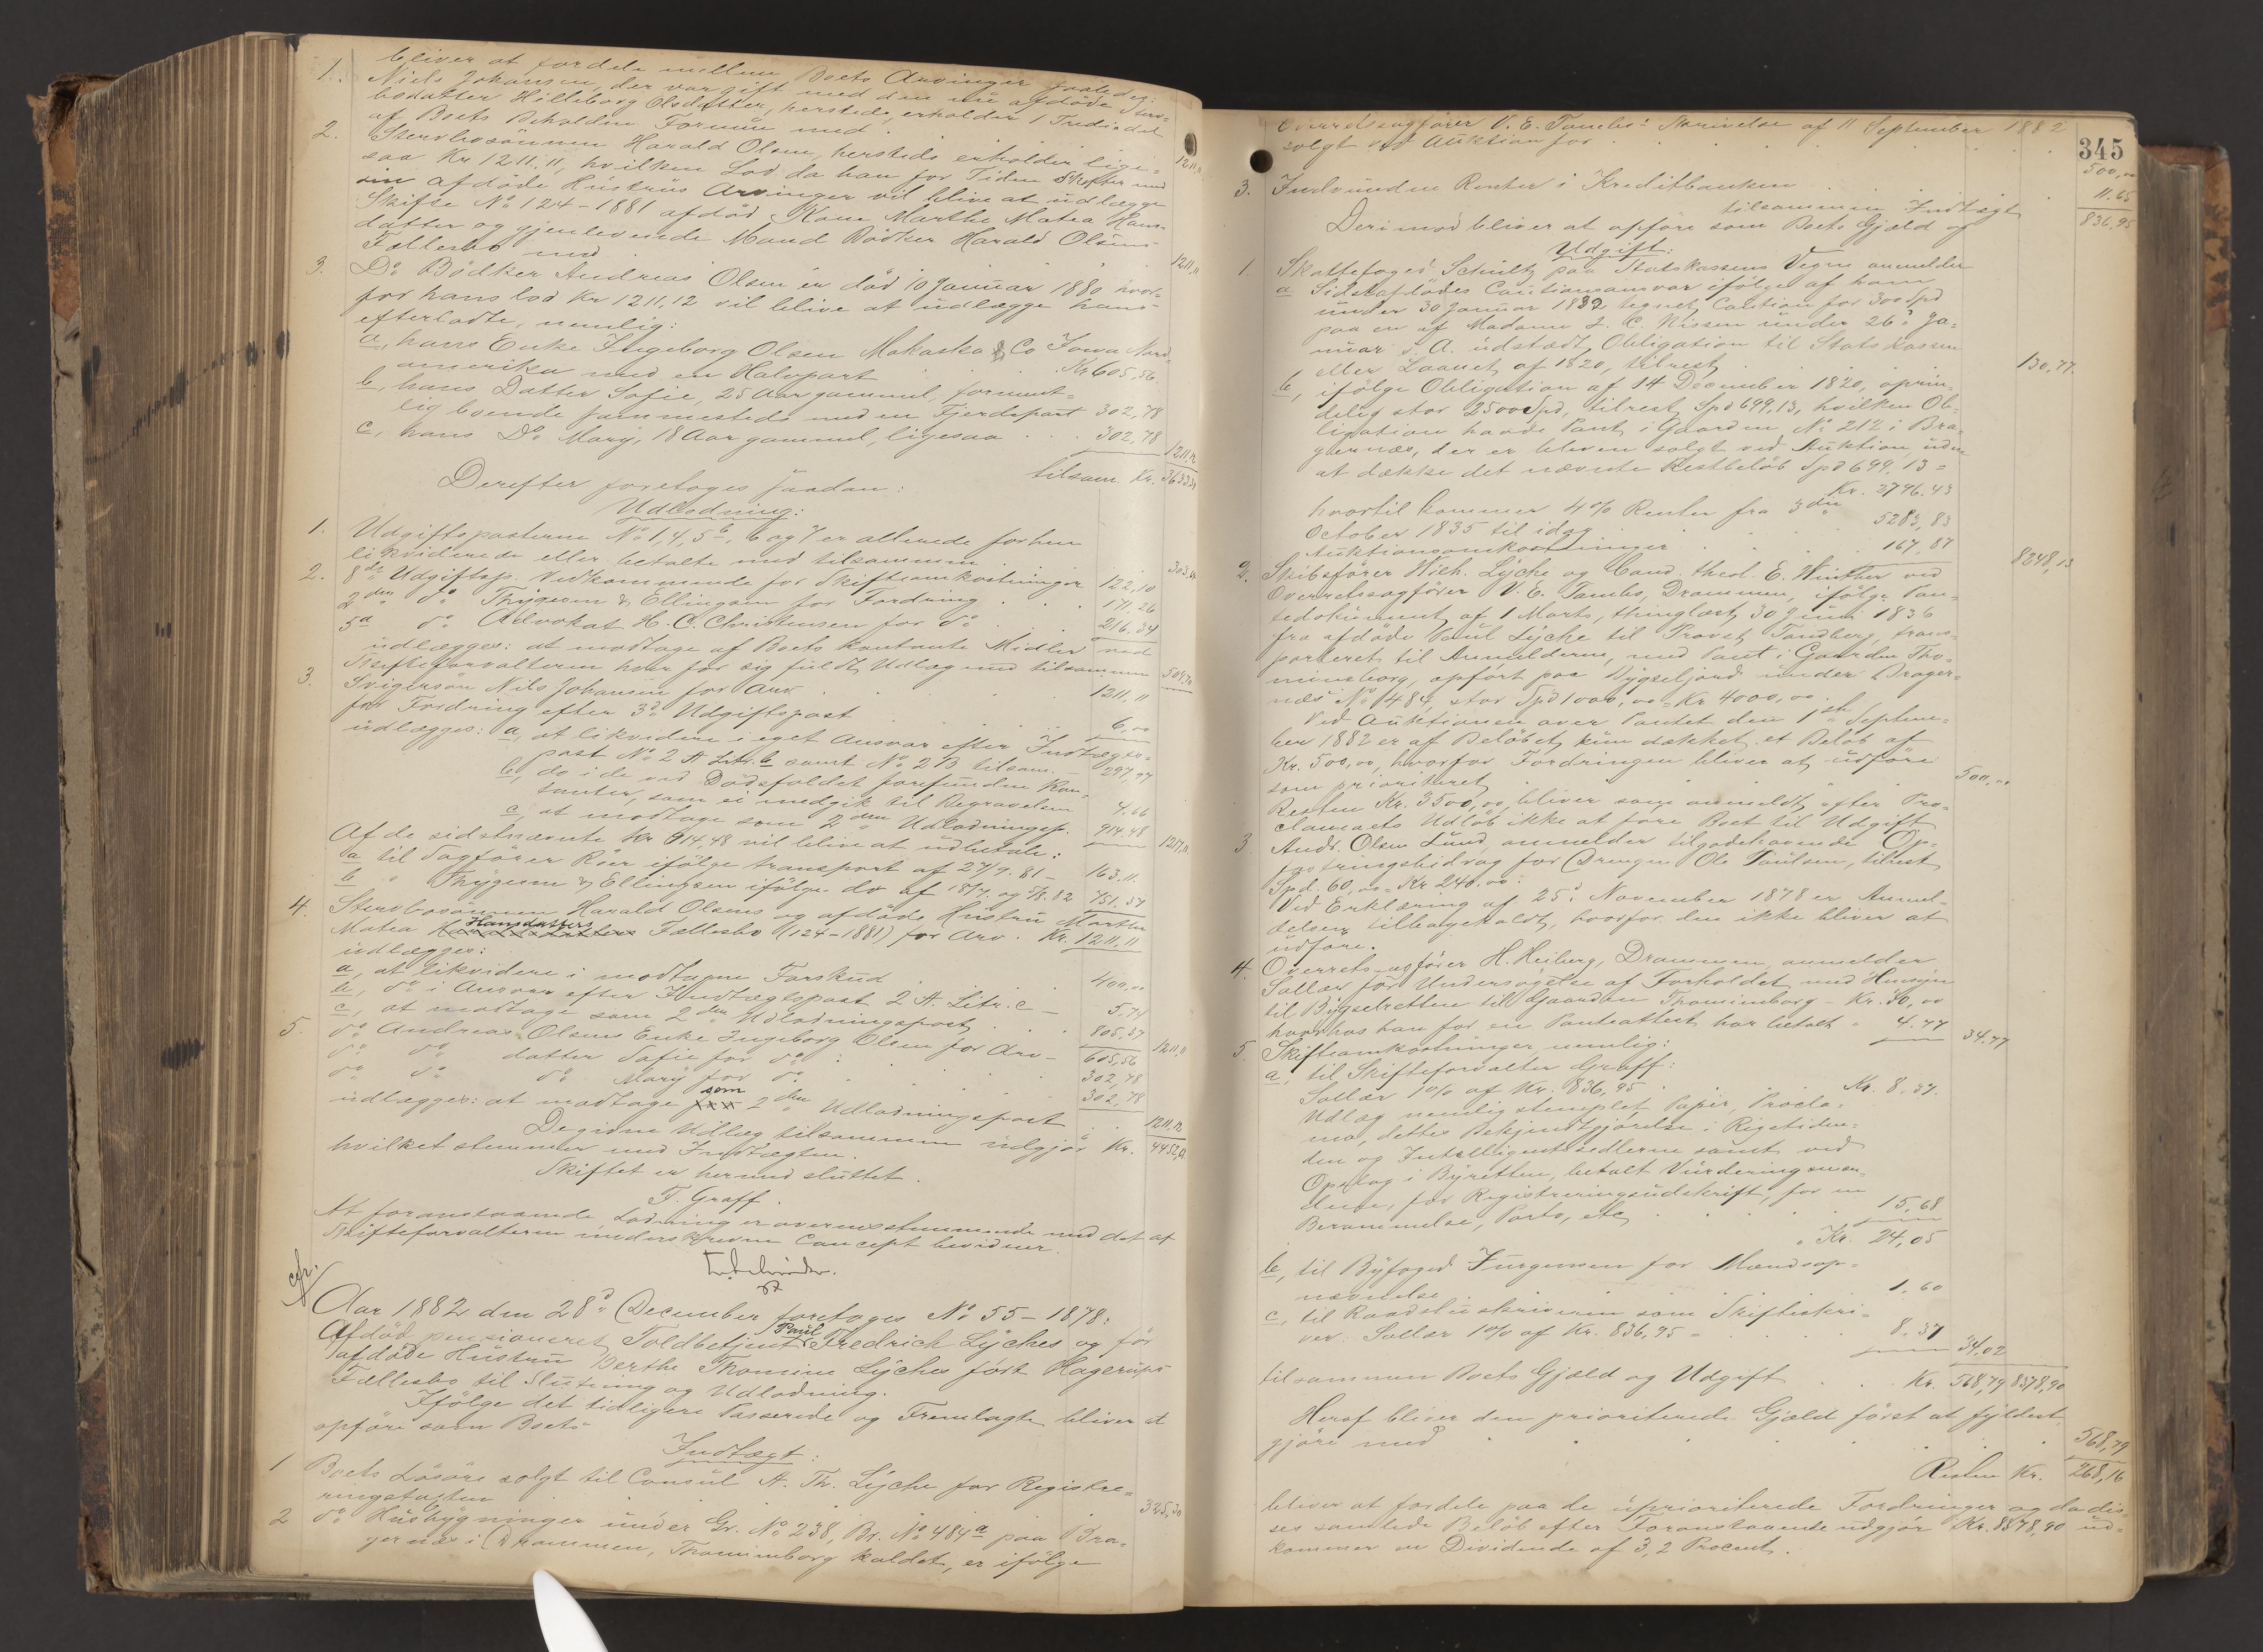 bliver at fordele mellem Boets Arvinger saaledes:
1. Niels Johansen, der var gift med den nu afdöde Sterv-
bodatter Hilleborg Olsdatter, hersteds, erholder 1 Trediedel
af Boets Beholdne Formue med . 1211,11
2. Stervbosönnen Harald Olsen, hersteds erholder lige-
saa Kr 1211.11, hvilken Lod da han for Tiden skifter med
sin afdöde Hustrus Arvinger vil blive at udlægge
Skifte No 124-1881 afdöd Kone Marthe Matea Hans-
datter og gjenlevende Mand Bödker Harald Olsens
Fællesbo med . 1211,11
3. Do Bödker Andreas Olsen er död 10 Januar 1880 hvor-
for hans lod Kr 1211.12 vil blive at udlægge hans
efterladte, nemlig:
a, hans Enke Ingeborg Olsen Mahaska Co Iowa Nord-
amerika med en Halvpart . . Kr 605,56
b, hans Datter Sofie, 25 Aar gammel, forment-
lig boende sammesteds med en Fjerdepart 302,78
c, hans Do Mary, 18 Aar gammel, ligesaa . . . 302,78 1211.12
tilsam. Kr. 3633,34
Derefter foretoges saadan:
Udlodning:
1. Udgiftsposterne No 1, 4, 5b, 6 og 7 er allerede forhen
likviderede eller betalte med tilsammen
2. 8de Udgiftsp. Vedkommende for Skifteomkostninger 122,10
2den " do Thygesen & Ellingsen for Fordring . . . 171,26
5a do Advokat H. C. Christensen for do . . 216.34
udlægges: at modtage af Boets kontante Midler ved
Skifteforvalteren hver for sig fuldt Udlæg med tilsammen 509,70
3. Svigersön Nils Johansen for Arv . . . 1211,11
for Fordring efter 3de Udgiftspost . . . 6,00
udlægges: a, at likvidere i eget Ansvar efter Indtægts-
post No 2 A Litr. b samt No 2 B tilsam. 297,97
b, do i de ved Dödsfaldet forefundne Kon-
tanter, som ei medgik til Begravelsen 4,66
c, at modtage som 2den Udlodningsp. 914.48 1217,11
Af de sidstnævnte Kr 914,48 vil blive at udbetale:
a til Sagförer Röer ifölge transport af 27/7. 81 - 163.11.
b " Thygesen & Ellingsen ifölge do af 18/7 og 5/8. 82 751.37
4. Stervbosönnen Harald Olsens og afdöde Hustru Marthe
Matea Hansdatters Fællesbo (124-1881) for Arv . Kr. 1211.11
udlægges:
a, at likvidere i modtagne Forskud . . . 400,00
b, do i Ansvar efter Indtægtspost 2 A. Litr. c - 5.74
c, at modtage som 2den Udlodningspost . . . 805,37 1211,11
5. do Andreas Olsens Enke Ingeborg Olsen for Arv - 605,56
do do datter Sofie for do : . . . 302,78
do do do Mary for do . . . 302,78
udlægges: at modtage som 2den Udlodningspost . . 1211,12
De givne Udlæg tilsammen udgjör Kr.
hvilket stemmer med Indtægten.
Skiftet er hermed sluttet.
F. Graff.
At foranstaaende Lodning er overensstemmende med det af
Skifteforvalteren underskrevne Concept bevidner.
Aar 1882 den 28de December foretoges No 55-1878:
Afdöd pensioneret Toldbetjent Paul Fredrich Lÿches og för
afdöde Hustru Berthe Thomine Lÿches födt Hagerups
Fællesbo til Slutning og Udlodning.
Ifölge det tidligere Passerede og Fremlagte bliver at
opföre som Boets
Indtægt:
1 Boets Lösöre solgt til Consul A. Th. Lÿche for Registre-
ringstaxten . . . 325,30
2 do Husbÿgninger under Gr. No 238, Br. No 484a paa Bra-
gernæs i Drammen, Thomineborg kaldet, er ifölge
345
Overretssagförer V. E. Tambs' Skrivelse af 11 September 1882
solgt ved Auktion for . . . 500,00
3. Indvundne Renter i Kreditbanken . . . 11.65
tilsammen Indtægt 836,95
Derimod bliver at opföre som Boets Gjæld og
Udgift:
1. Skattefoged Schultz paa Statskassens Vegne anmelder
a Sidstafdödes Cautionsansvar ifölge af ham
under 30 Januar 1832 tegnet Caution for 300 Spd
paa en af Madame L. C. Nissen under 26de Ja-
nuar s. A. udstædt Obligation til Statskassen
eller Laanet af 1820, tilrest . . . 130,77.
b, ifölge Obligation af 14 December 1820, oprin-
delig stor 2500 Spd, tilrest Spd 699,13, hvilken Ob-
ligation havde Pant i Gaarden No 212 i Bra-
gernæs, der er bleven solgt ved Auktion uden
at dække det nævnte Restbelöb Spd 699. 13 =
Kr. 2796.43
hvortil kommer 4% Renter fra 3die
October 1835 til idag . . . 5283,83
Auktionsomkostninger . . . 167,87 8248,13
2. Skibsförer Wilh. Lÿche og Cand. theol. E. Winther ved
Overretssagförer V. E. Tambs, Drammen, ifölge Pan-
tedokument af 1 Marts, thinglæst 30 Juni 1836
fra afdöde Paul Lÿche til Provst Tandberg, trans-
porteret til Anmelderne, med Pant i Gaarden Tho-
mineborg, opfört paa Bÿgseljord under Brager-
næs No 484, stor Spd 1000,00 = Kr 4000,00 .
Ved Auktionen over Pantet den 1ste Septem-
ber 1882 er af Belöbet kun dækket et Belöb af
Kr. 500,00, hvorfor Fordringen bliver at udföre
som prioriteret . . . 500,00
Resten Kr. 3500,00, bliver som anmeldt efter Pro-
clamaets Udlöb ikke at före Boet til Udgift.
3 Andr. Olsen Lund, anmelder tilgodehavende Op-
fostringsbidrag for Drengen Ole Paulsen, tilrest
Spd. 60,00 = Kr 240.00.
Ved Erklæring af 25de November 1878 er Anmel-
delsen tilbagekaldt, hvorfor den ikke bliver at
udföre.
4. Overretssagförer H. Heiberg, Drammen, anmelder
Sallær for Undersögelse af Forholdet med Hensyn
til Bÿgselretten til Gaarden Thomineborg - Kr. 30,00
hvorhos han for en Panteattest har betalt " 4.77 34.77
5. Skifteomkostninger nemlig:
a, til Skifteforvalter Graff:
Sallær 1% af Kr. 836,95 . Kr. 8.37.
Udlæg nemlig stemplet Papir, Procla-
ma, dettes Bekjendtgjörelse i Rigstiden-
den og Intelligentssedlerne samt ved
Opslag i Bÿretten, betalt Vurderingsmæn-
dene, for Registreringsudskrift, for en
Berammelse, Porto, etc . . . 15,68
Kr. 24,05
b, til Bÿfoged Jürgensen for Mændsop-
nævnelse . . . 1.60
c, til Raadstueskriveren som Skifteskri-
ver. Sallær 1% af Kr. 836,95 = . . . 8.37 34,02
tilsammen Boets Gjæld og Udgift . . Kr. 568,79 8378,90
Heraf bliver den prioriterede Gjæld först at fÿldest
gjöre med . . . 568,79
Resten Kr. 268,16
bliver at fordele paa de uprioriterede Fordringer og da dis-
ses samlede Belöb efter Foranstaaende udgjör Kr. 8378,90 ud-
kommer en Dividende af 3,2 Procent.